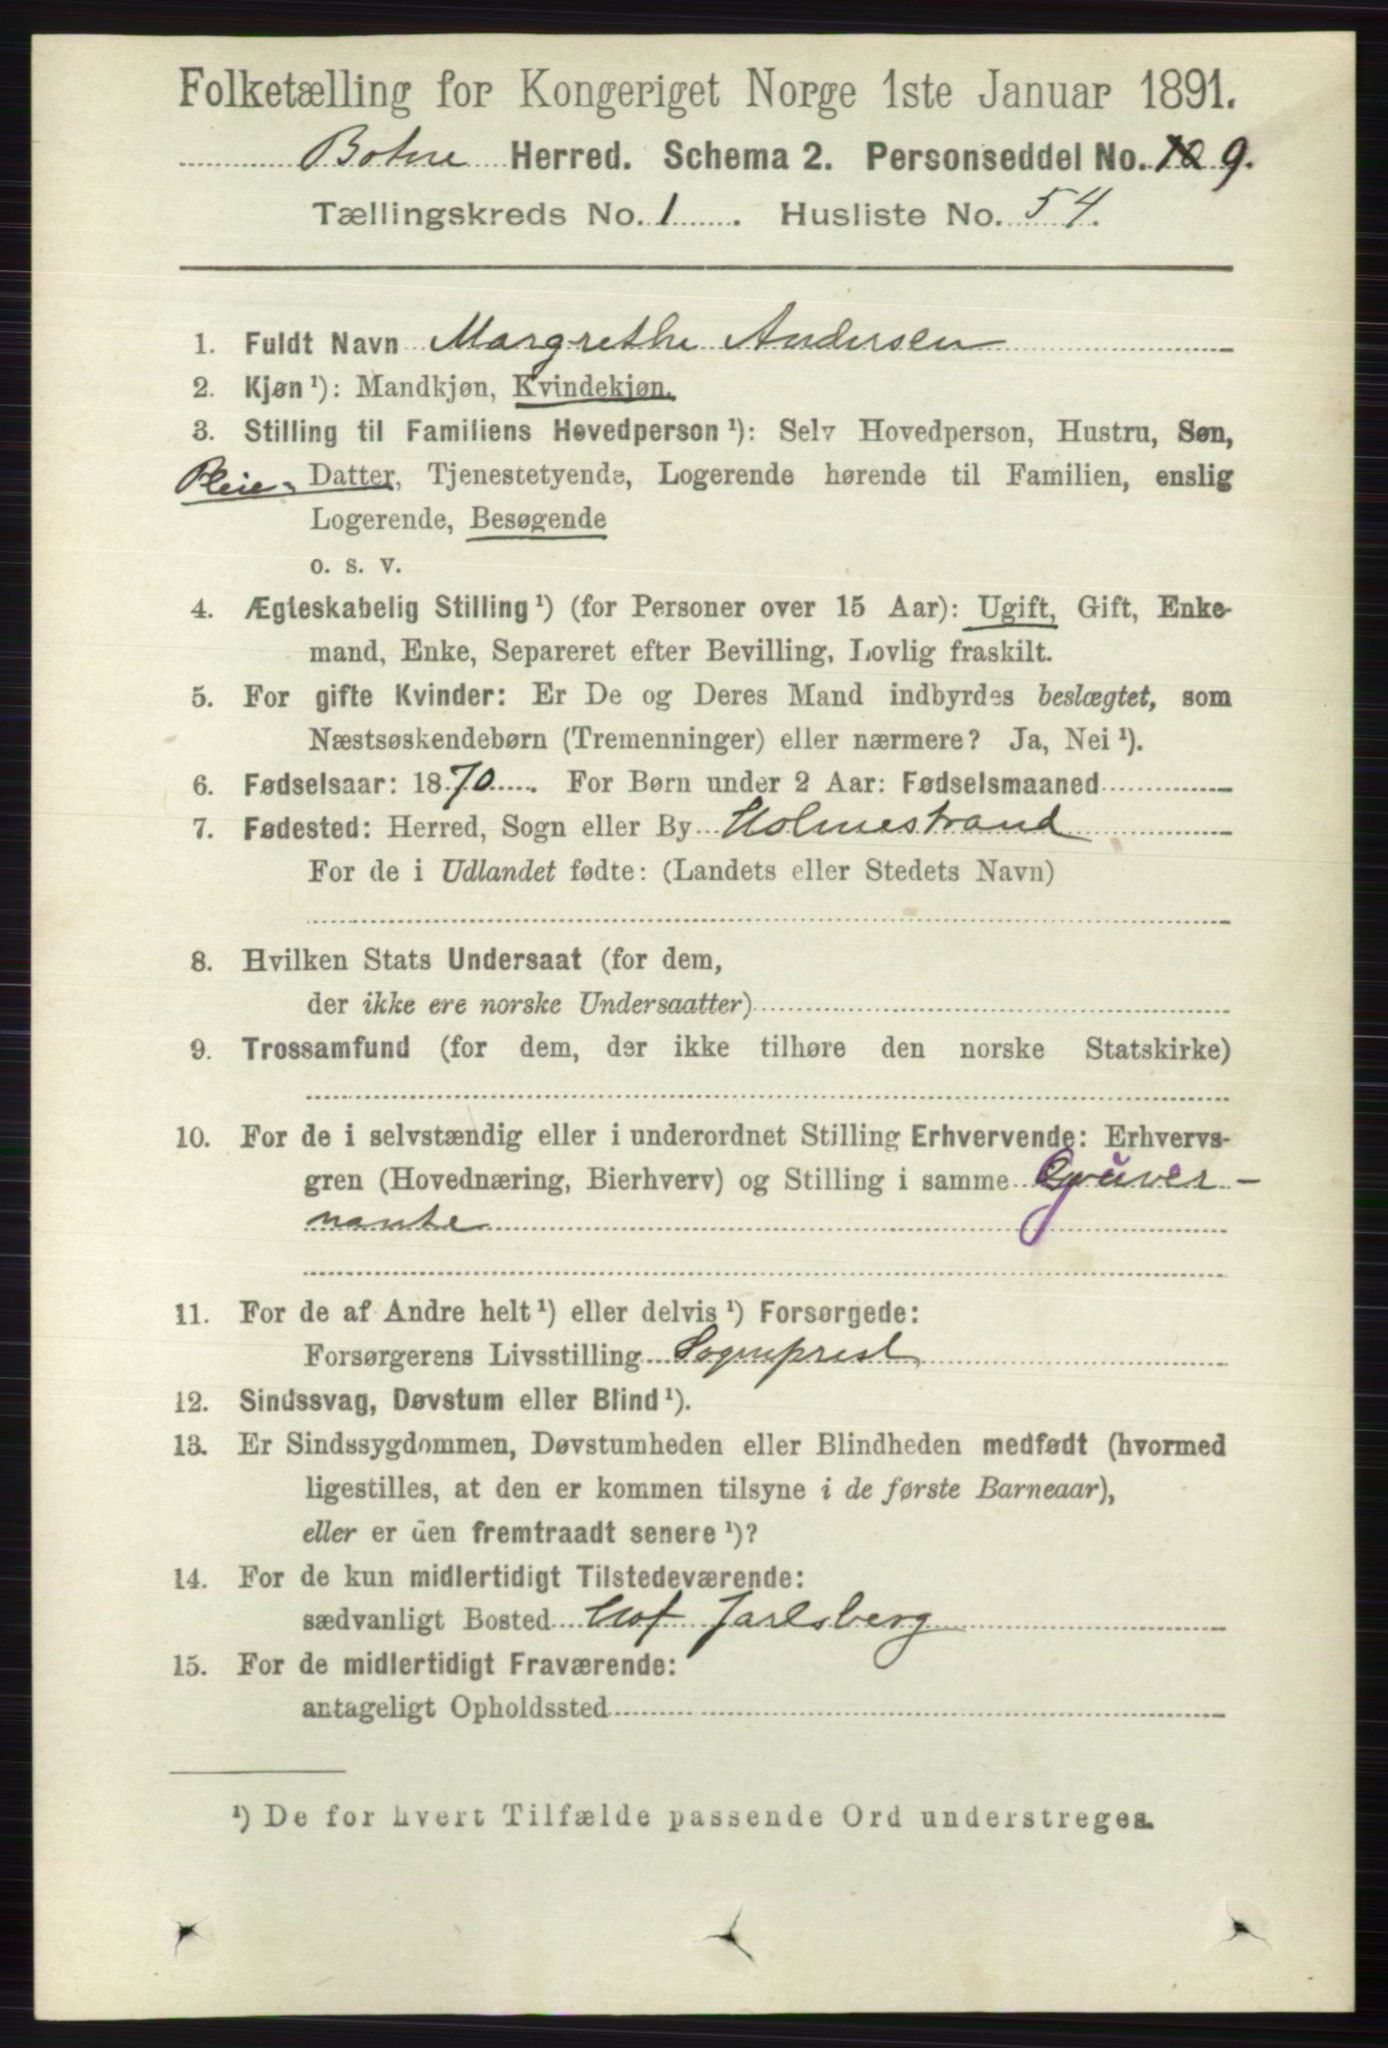 Folketælling for Kongeriget Norge 1ste Januar 1891.
Botne Herred. Schema 2. Personseddel No. 10 9.
Tællingskreds No. 1. Husliste No. 54.
1. Fuldt Navn Margrethe Andersen
2. Kjøn ¹): Mandkjøn, Kvindekjøn.
3. Stilling til Familiens Hovedperson ¹): Selv Hovedperson, Hustru, Søn,
Pleie- Datter, Tjenestetyende, Logerende hørende til Familien, enslig
Logerende, Besøgende
o. s. v.
4. Ægteskabelig Stilling ¹) (for Personer over 15 Aar): Ugift, Gift, Enke-
mand, Enke, Separeret efter Bevilling, Lovlig fraskilt.
5. For gifte Kvinder: Er De og Deres Mand indbyrdes beslægtet, som
Næstsøskendebørn (Tremenninger) eller nærmere? Ja, Nei ¹).
6. Fødselsaar: 1870. For Børn under 2 Aar: Fødselsmaaned
7. Fødested: Herred, Sogn eller By Holmestrand
For de i Udlandet fødte: (Landets eller Stedets Navn)
8. Hvilken Stats Undersaat (for dem,
der ikke ere norske Undersaatter)
9. Trossamfund (for dem, der ikke tilhøre den norske Statskirke)
10. For de i selvstændig eller i underordnet Stilling Erhvervende: Erhvervs-
gren (Hovednæring, Bierhverv) og Stilling i samme Guver-
nante
11. For de af Andre helt ¹) eller delvis ¹) Forsørgede:
Forsørgerens Livsstilling Sogneprest
12. Sindssvag, Døvstum eller Blind ¹).
13. Er Sindssygdommen, Døvstumheden eller Blindheden medfødt (hvormed
ligestilles, at den er kommen tilsyne i de første Barneaar),
eller er den fremtraadt senere ¹)?
14. For de kun midlertidigt Tilstedeværende:
sædvanligt Bosted Hof Jarlsberg
15. For de midlertidigt Fraværende:
antageligt Opholdssted
¹) De for hvert Tilfælde passende Ord understreges.